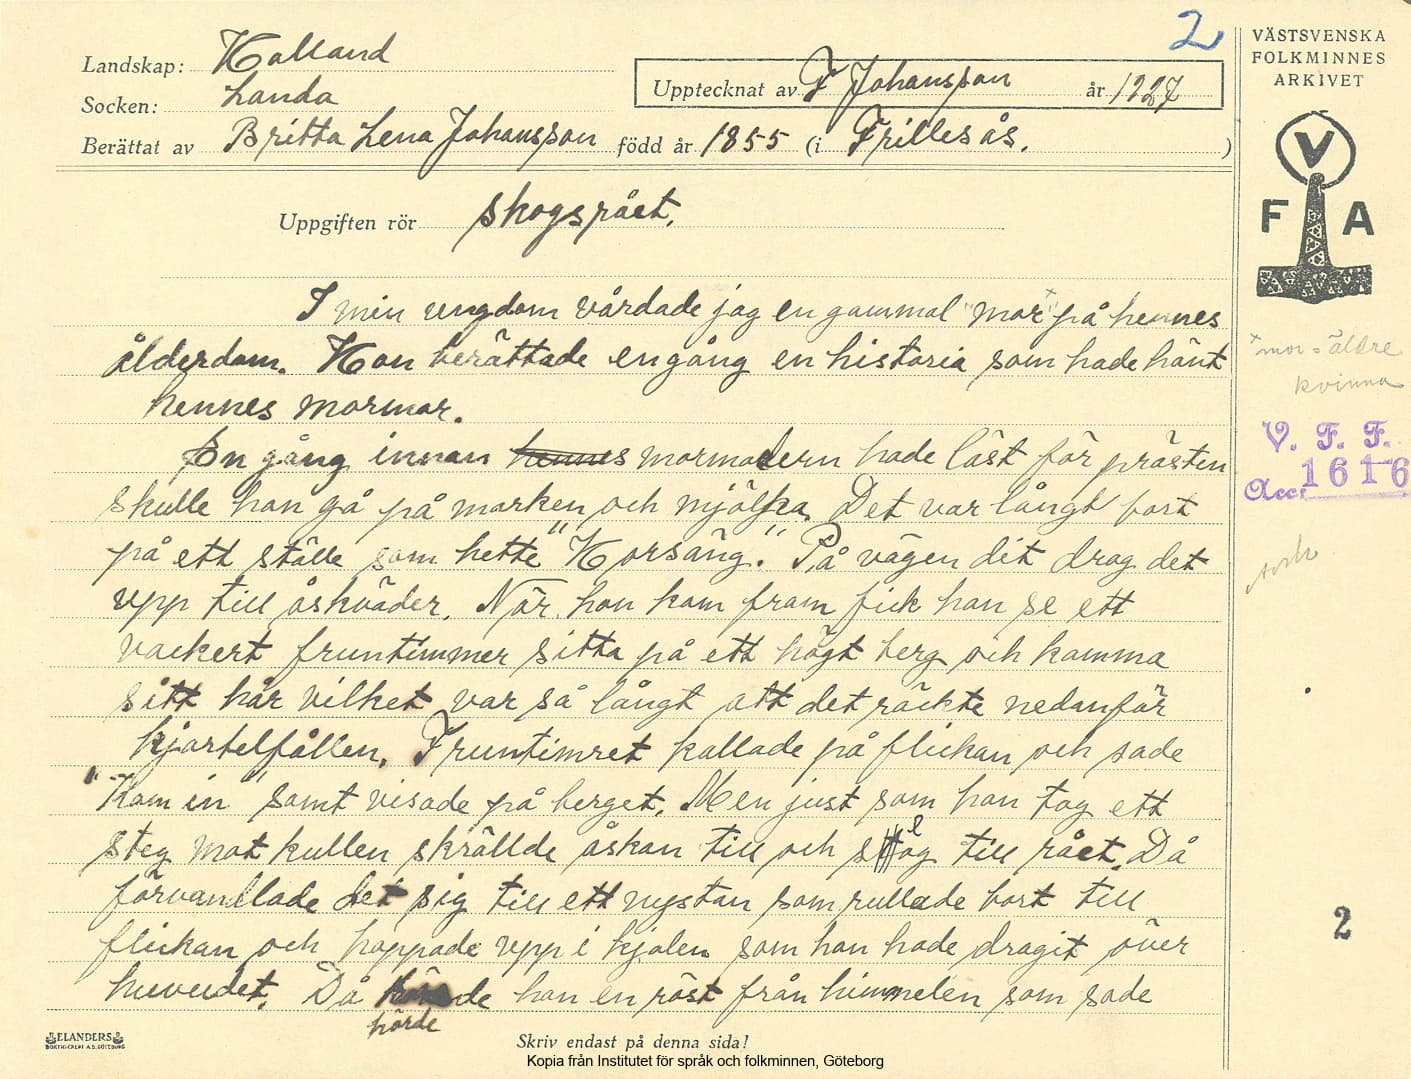 2
VÄSTSVENSKA
FOLKMINNES
ARKIVET
Landskap: Halland
Socken: Landa
Upptecknat av F Johansson år 1927
Berättat av Britta Lena Johansson född år 1855 (i Frillesås. )
V
F A
Uppgiften rör skogsrået.
I min ungdom vårdade jag en gammal "mor"x på hennes
ålderdom. Hon berättade engång en historia som hade hänt
hennes mormor.
x mor = äldre
kvinna
V. F. F.
Acc. 1616
En gång innan hennes mormodern hade läst för prästen
skulle hon gå på marken och mjölka. Det var långt bort
på ett ställe som hette "Korsäng." På vägen dit drog det
upp till åskväder. När hon kom fram fick hon se ett
vackert fruntimmer sitta på ett högt berg och kamma
sitt hår vilket var så långt att det räckte nedanför
kjortelfållen. Fruntimret kallade på flickan och sade
"Kom in" samt visade på berget. Men just som hon tog ett
steg mot kullen skrällde åskan till och slog till rået. Då
förvandlade det sig till ett nystan som rullade bort till
flickan och hoppade upp i kjolen som hon hade dragit över
huvudet. Då hörde hon en röst från himmelen som sade
hörde
2
ELANDERS
BOKTRYCKERI A.B. GÖTEBORG
Skriv endast på denna sida!
Kopia från Institutet för språk och folkminnen, Göteborg